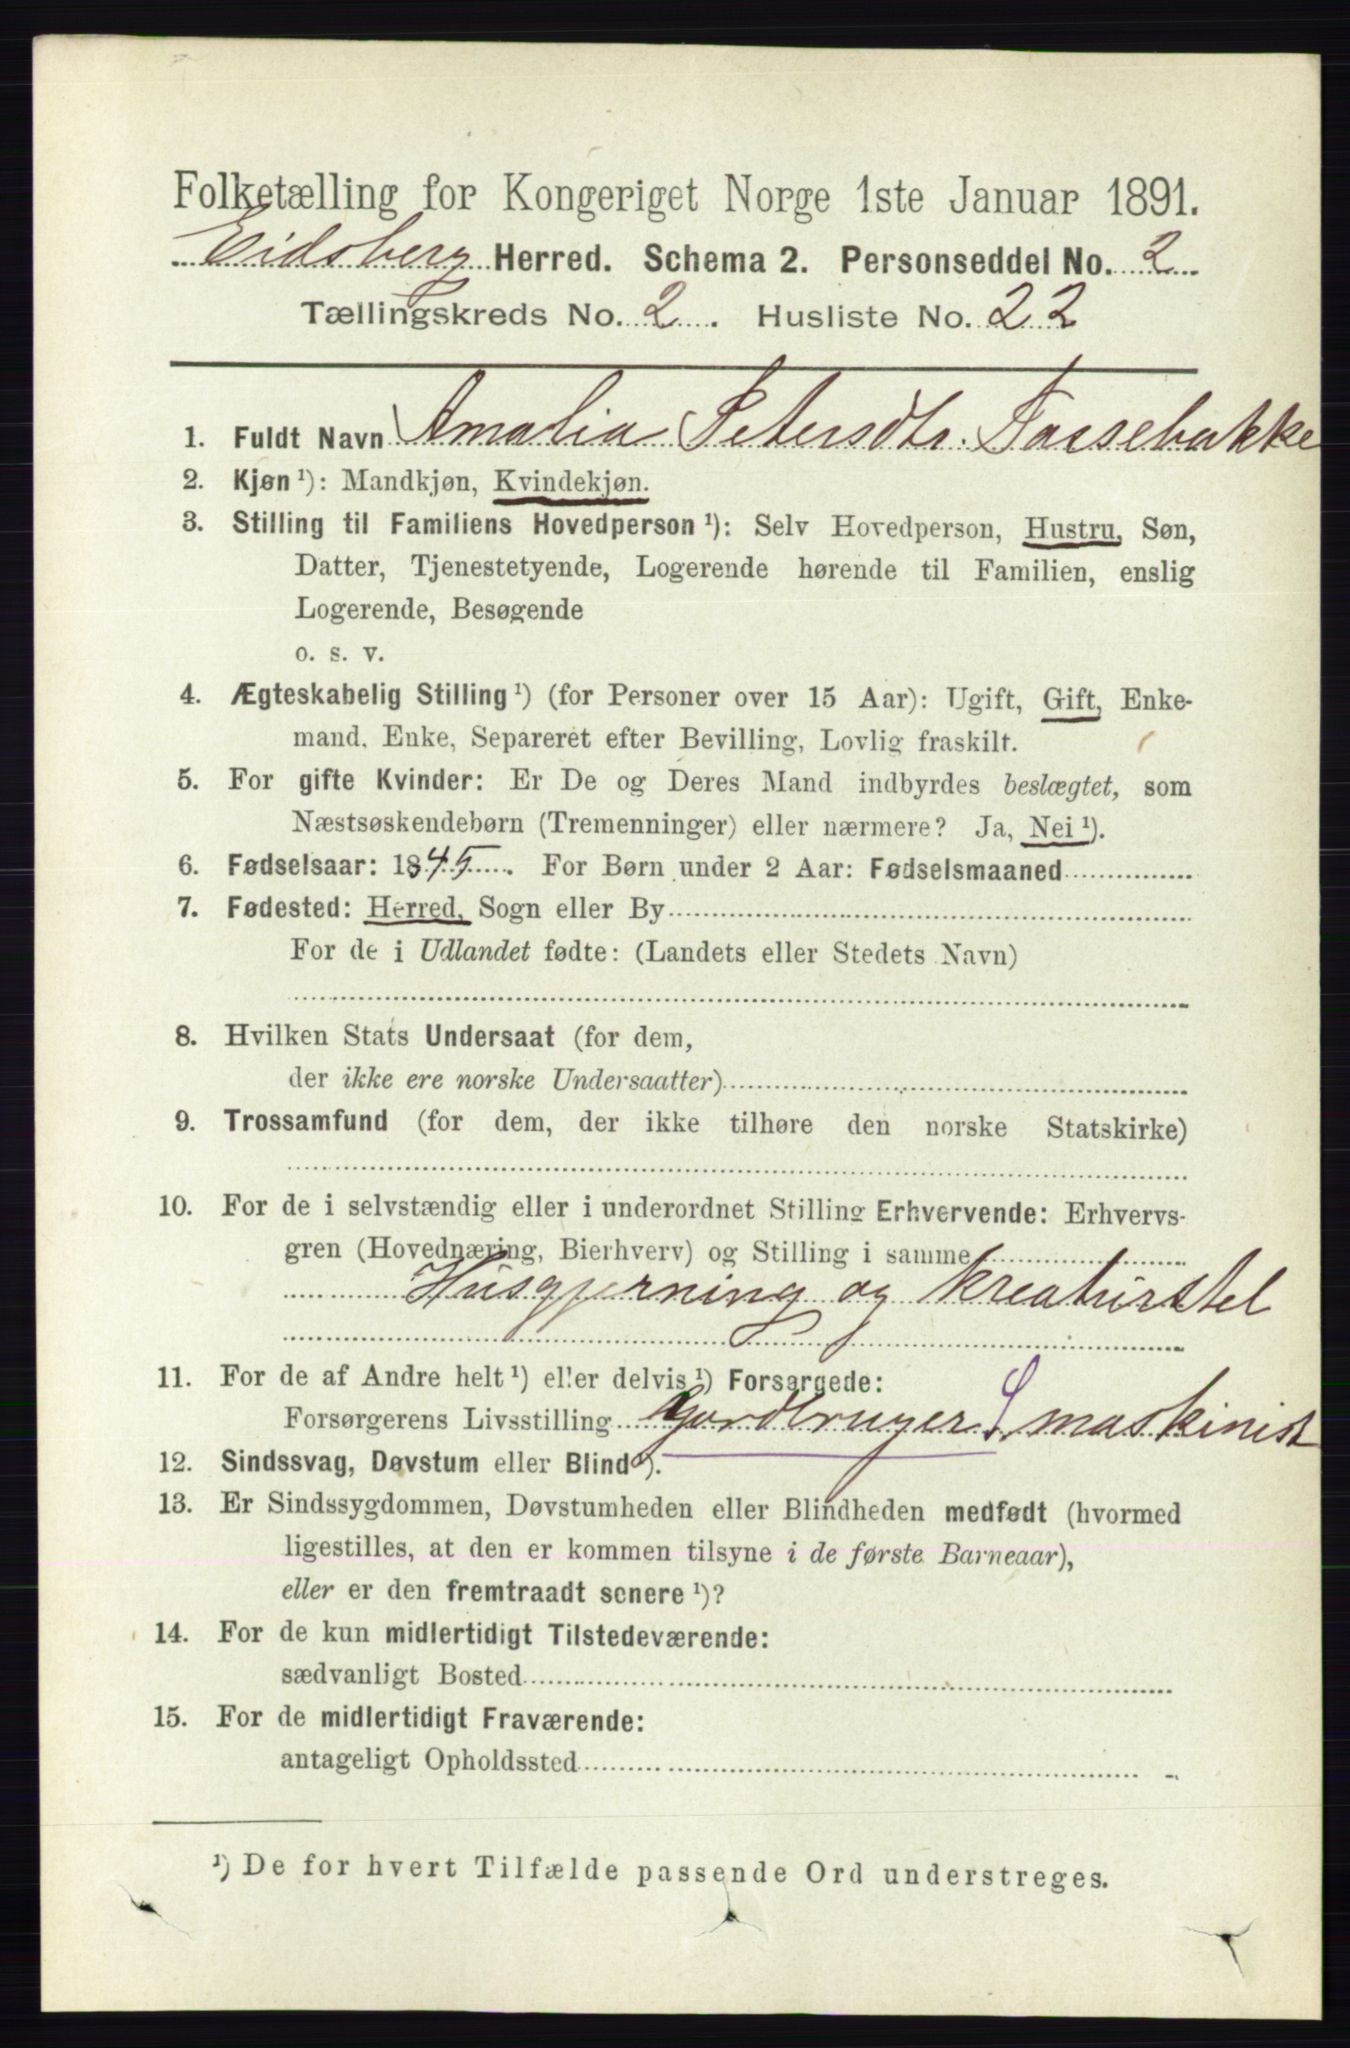 Folketælling for Kongeriget Norge 1ste Januar 1891.
Eidsberg Herred. Schema 2. Personseddel No. 2
Tællingskreds No. 2. Husliste No. 22
1. Fuldt Navn Amalia Petersdtr. Fossebakke
2. Kjøn ¹): Mandkjøn, Kvindekjøn.
3. Stilling til Familiens Hovedperson ¹): Selv Hovedperson, Hustru, Søn,
Datter, Tjenestetyende, Logerende hørende til Familien, enslig
Logerende, Besøgende
o. s. v.
4. Ægteskabelig Stilling ¹) (for Personer over 15 Aar): Ugift, Gift, Enke-
mand, Enke, Separeret efter Bevilling, Lovlig fraskilt.
5. For gifte Kvinder: Er De og Deres Mand indbyrdes beslægtet, som
Næstsøskendebørn (Tremenninger) eller nærmere? Ja, Nei ¹).
6. Fødselsaar: 1845. For Børn under 2 Aar: Fødselsmaaned
7. Fødested: Herred, Sogn eller By
For de i Udlandet fødte: (Landets eller Stedets Navn)
8. Hvilken Stats Undersaat (for dem,
der ikke ere norske Undersaatter)
9. Trossamfund (for dem, der ikke tilhøre den norske Statskirke)
10. For de i selvstændig eller i underordnet Stilling Erhvervende: Erhvervs-
gren (Hovednæring, Bierhverv) og Stilling i samme
Husgjerning og kreaturstel
11. For de af Andre helt ¹) eller delvis ¹) Forsørgede:
Forsørgerens Livsstilling Gardbruger S, maskinist
12. Sindssvag, Døvstum eller Blind ¹).
13. Er Sindssygdommen, Døvstumheden eller Blindheden medfødt (hvormed
ligestilles, at den er kommen tilsyne i de første Barneaar),
eller er den fremtraadt senere ¹)?
14. For de kun midlertidigt Tilstedeværende:
sædvanligt Bosted
15. For de midlertidigt Fraværende:
antageligt Opholdssted
¹) De for hvert Tilfælde passende Ord understreges.